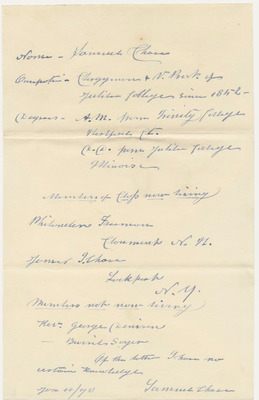 Name - Samuel Chase
Occupation - Clergyman & V. Prest. of
Jubilee College since 1842-
Degrees - A.M. from Trinity College
Hartford Ct.
D.D. from Jubilee College
Illinois
Members of Class now living
Freeman
Claremont N.H.
James Chase
Lockport
N.Y.
Members not now living
Rev. George
Of the latter I have no
certain knowledge
Samuel Chase